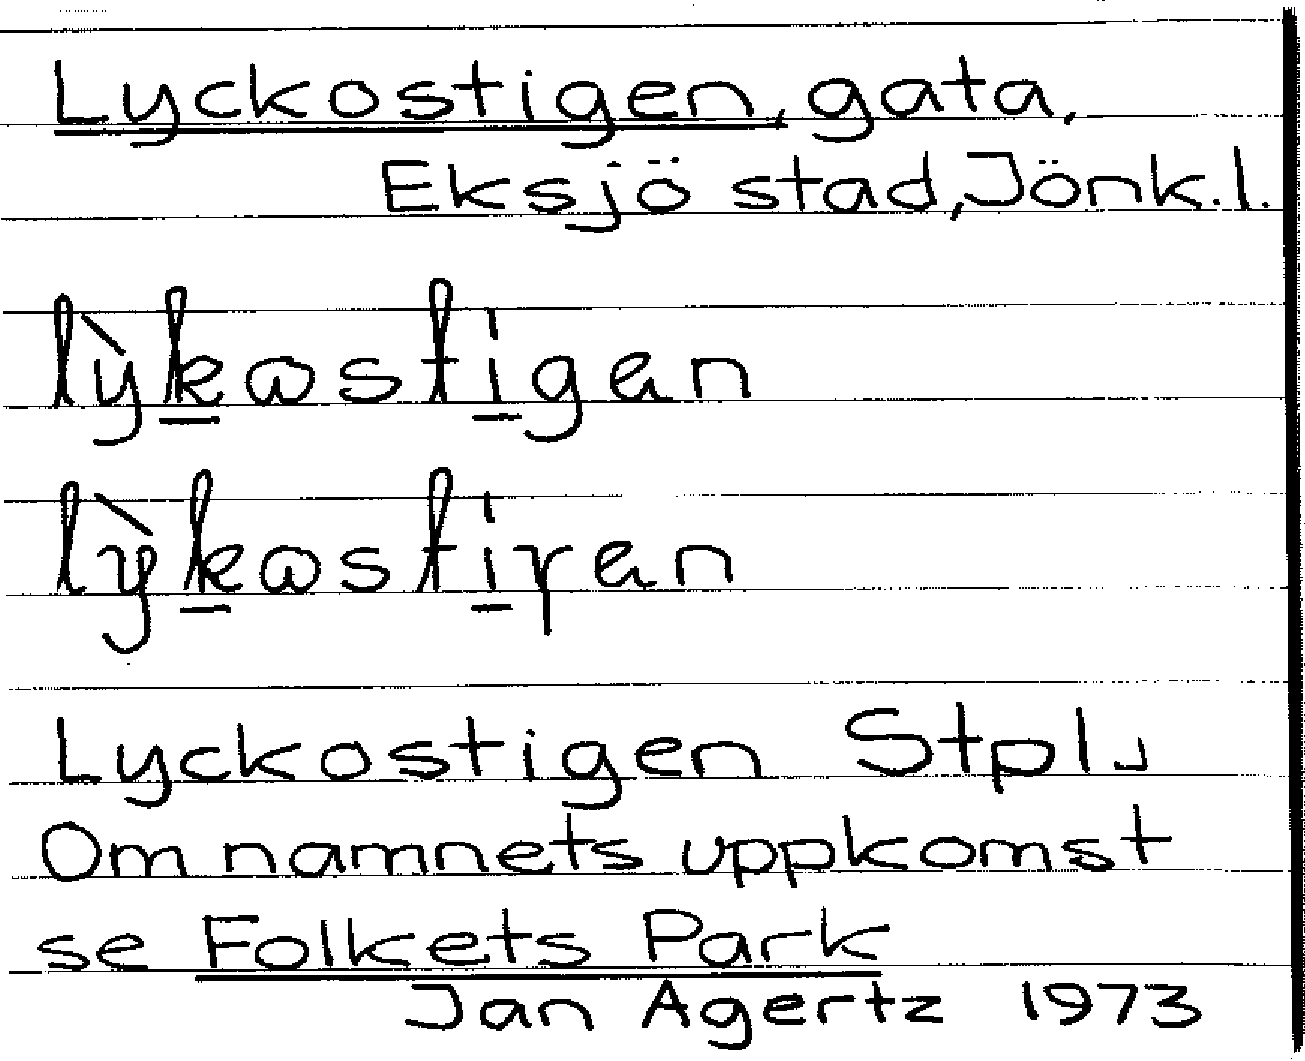 Lyckostigen, gata,
Eksjö stad, Jönk.l.
lỳkωstigən
lỳkωstiɤən
Lyckostigen Stpl
Om namnets uppkomst
se Folkets Park
Jan Agertz 1973